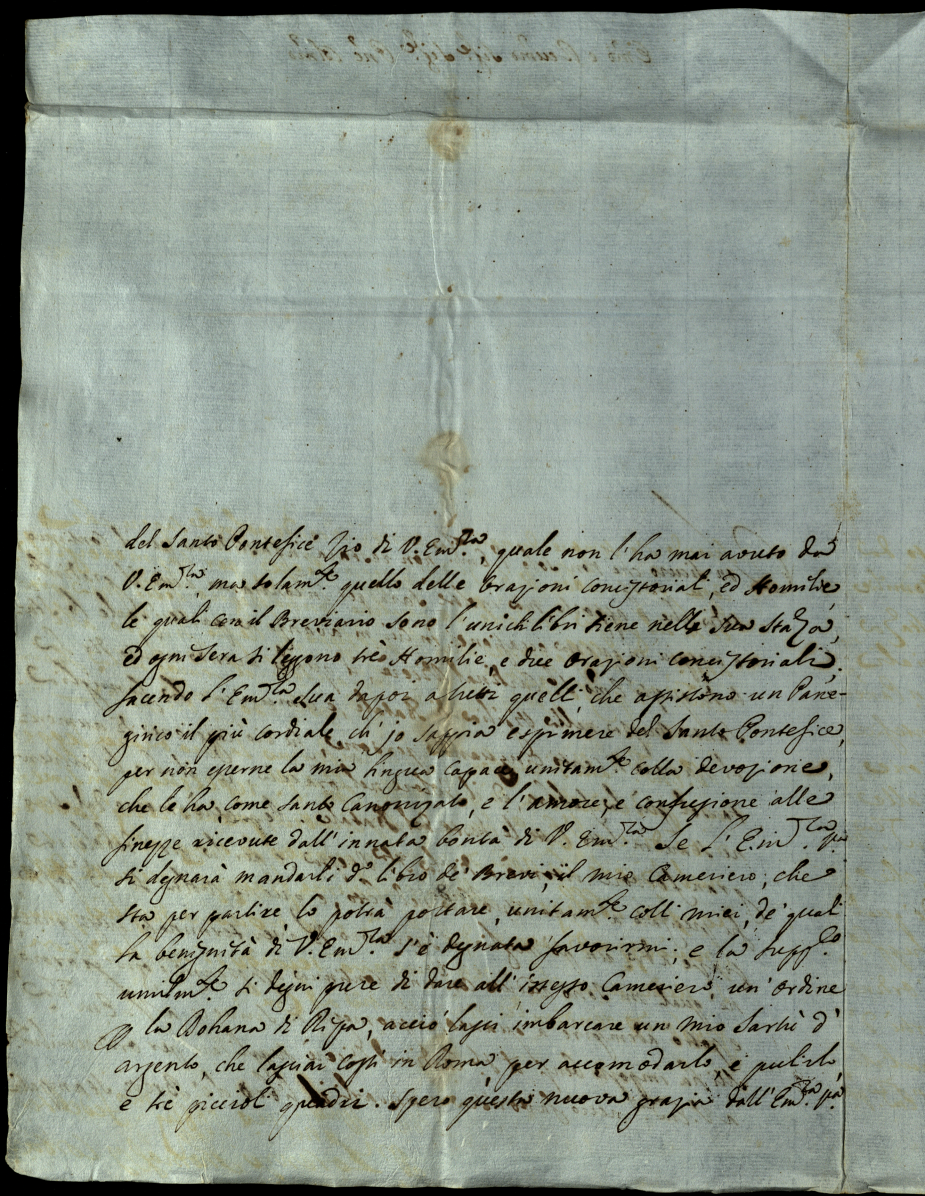 del Santo Pontefice Zio di V. Em.za, quale non l'ha mai avuto da
V. Em.za, ma solam.te quello delle Orazioni concistoriali, ed Homilie,
le quali con il Breviario sono l'unichi libri tiene nella sua Stanza,
ed ogni sera si leggono trè Homilie, e due orazioni concistoriali,
facendo l'Em.za Sua dapoi a tutti quelli, che assistono un Pane-
girico il più cordiale ch'io sappia esprimere del Santo Pontefice,
per non esserne la mia lingua capace, unitam.te colla devozione,
che le ha come Santo Canonizato, e l'amore, e confusione alle
finezze ricevute dall'innata bontà di V. Em.za Se l'Em.za
si degnarà mandarli d.o libro de' Brevi, il mio Cameriero, che
sta per partire lo potrà portare, unitam.te colli miei, de' quali
la benignità di V. Em.za s'è degnata favorirmi; e la supp.co
umilm.te si degni pure di dare all'istesso Cameriero un'ordine
la Dohana di Ripa, acciò lasci imbarcare un mio
argento, che lasciai costì in Roma per accomodarlo, e pulirlo,
e trè piccioli quadri. Spero questa nuova grazia dall'Em.za